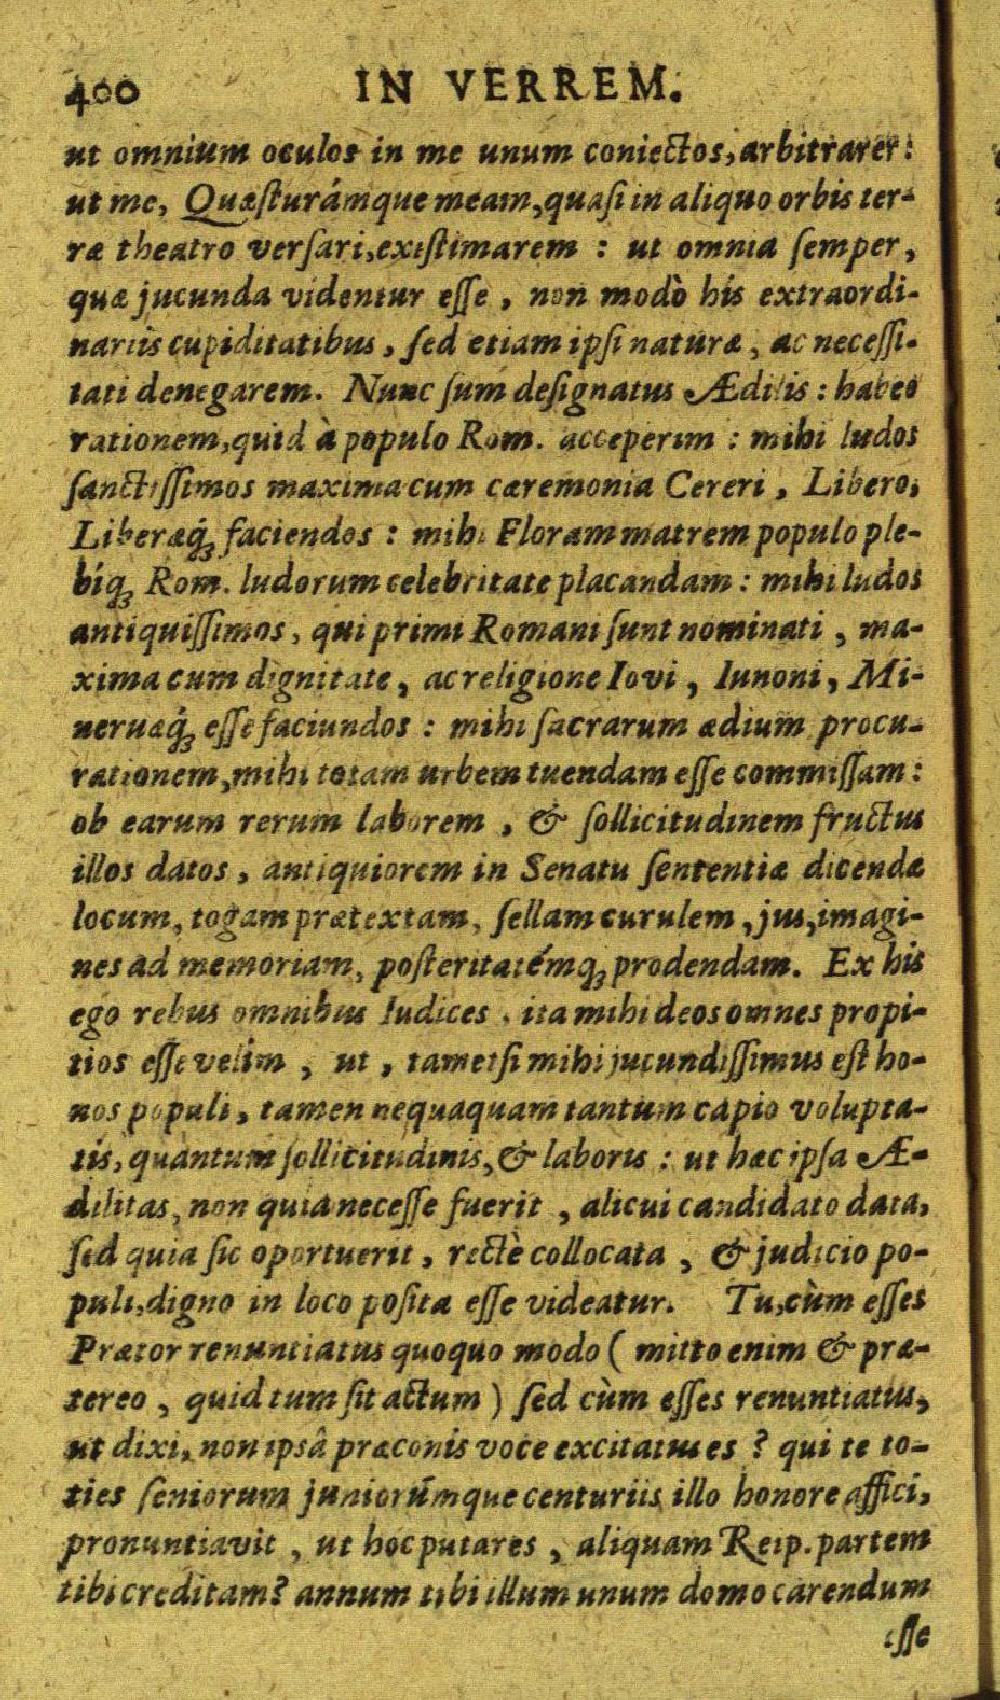 400 IN VERREM.
ut omnium oculos in me unum coniectos, arbitrarer:
ut me, Quæsturámque meam, quasi in aliquo orbis ter-
ræ theatro versari, existimarem : ut omnia semper,
quæ jucunda videntur esse, non modò his extraordi-
nariis cupiditatibus, sed etiam ipsi naturæ, ac necessi-
tati denegarem. Nunc sum designatus Ædilis : habeo
rationem, quid à populo Rom. acceperim : mihi ludos
sanctissimos maxima cum cæremonia Cereri, Libero,
Liberæq́; faciendos : mihi Floram matrem populo ple-
bíq; Rom. ludorum celebritate placandam : mihi ludos
antiquissimos, qui primi Romani sunt nominati, ma-
xima cum dignitate, ac religione Iovi, Iunoni, Mi-
neruæq́; esse faciundos : mihi sacrarum ædium procu-
rationem, mihi totam urbem tuendam esse commissam :
ob earum rerum laborem, & sollicitudinem fructus
illos datos, antiquiorem in Senatu sententiæ dicendæ
locum, togam prætextam, sellam curulem, jus, imagi-
nes ad memoriam, posteritatémq; prodendam. Ex his
ego rebus omnibus Iudices, ita mihi deos omnes propi-
tios esse velim, ut, tametsi mihi jucundissimus est ho-
nos populi, tamen nequaquam tantum capio volupta-
tis, quantum sollicitudinis, & laboris : ut hæc ipsa Æ-
dilitas, non quia necesse fuerit, alicui candidato data,
sed quia sic oportuerit, rectè collocata, & judicio po-
puli, digno in loco posita esse videatur. Tu, cùm esses
Prætor renuntiatus quoquo modo ( mitto enim & præ-
tereo, quid tum sit actum ) sed cùm esses renuntiatus,
ut dixi, non ipsâ præconis voce excitatus es ? qui te to-
ties seniorum juniorúmque centuriis illo honore affici,
pronuntiavit, ut hoc putares, aliquam Reip. partem
tibi creditam? annum tibi illum unum domo carendum
esse